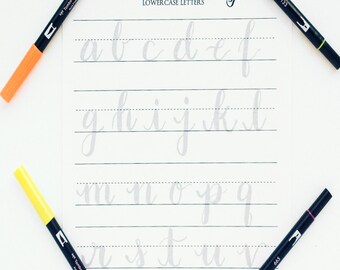 LOWERCASE LETTERS
a b c d e f
g h i j k l
m n o p q
r s t u v